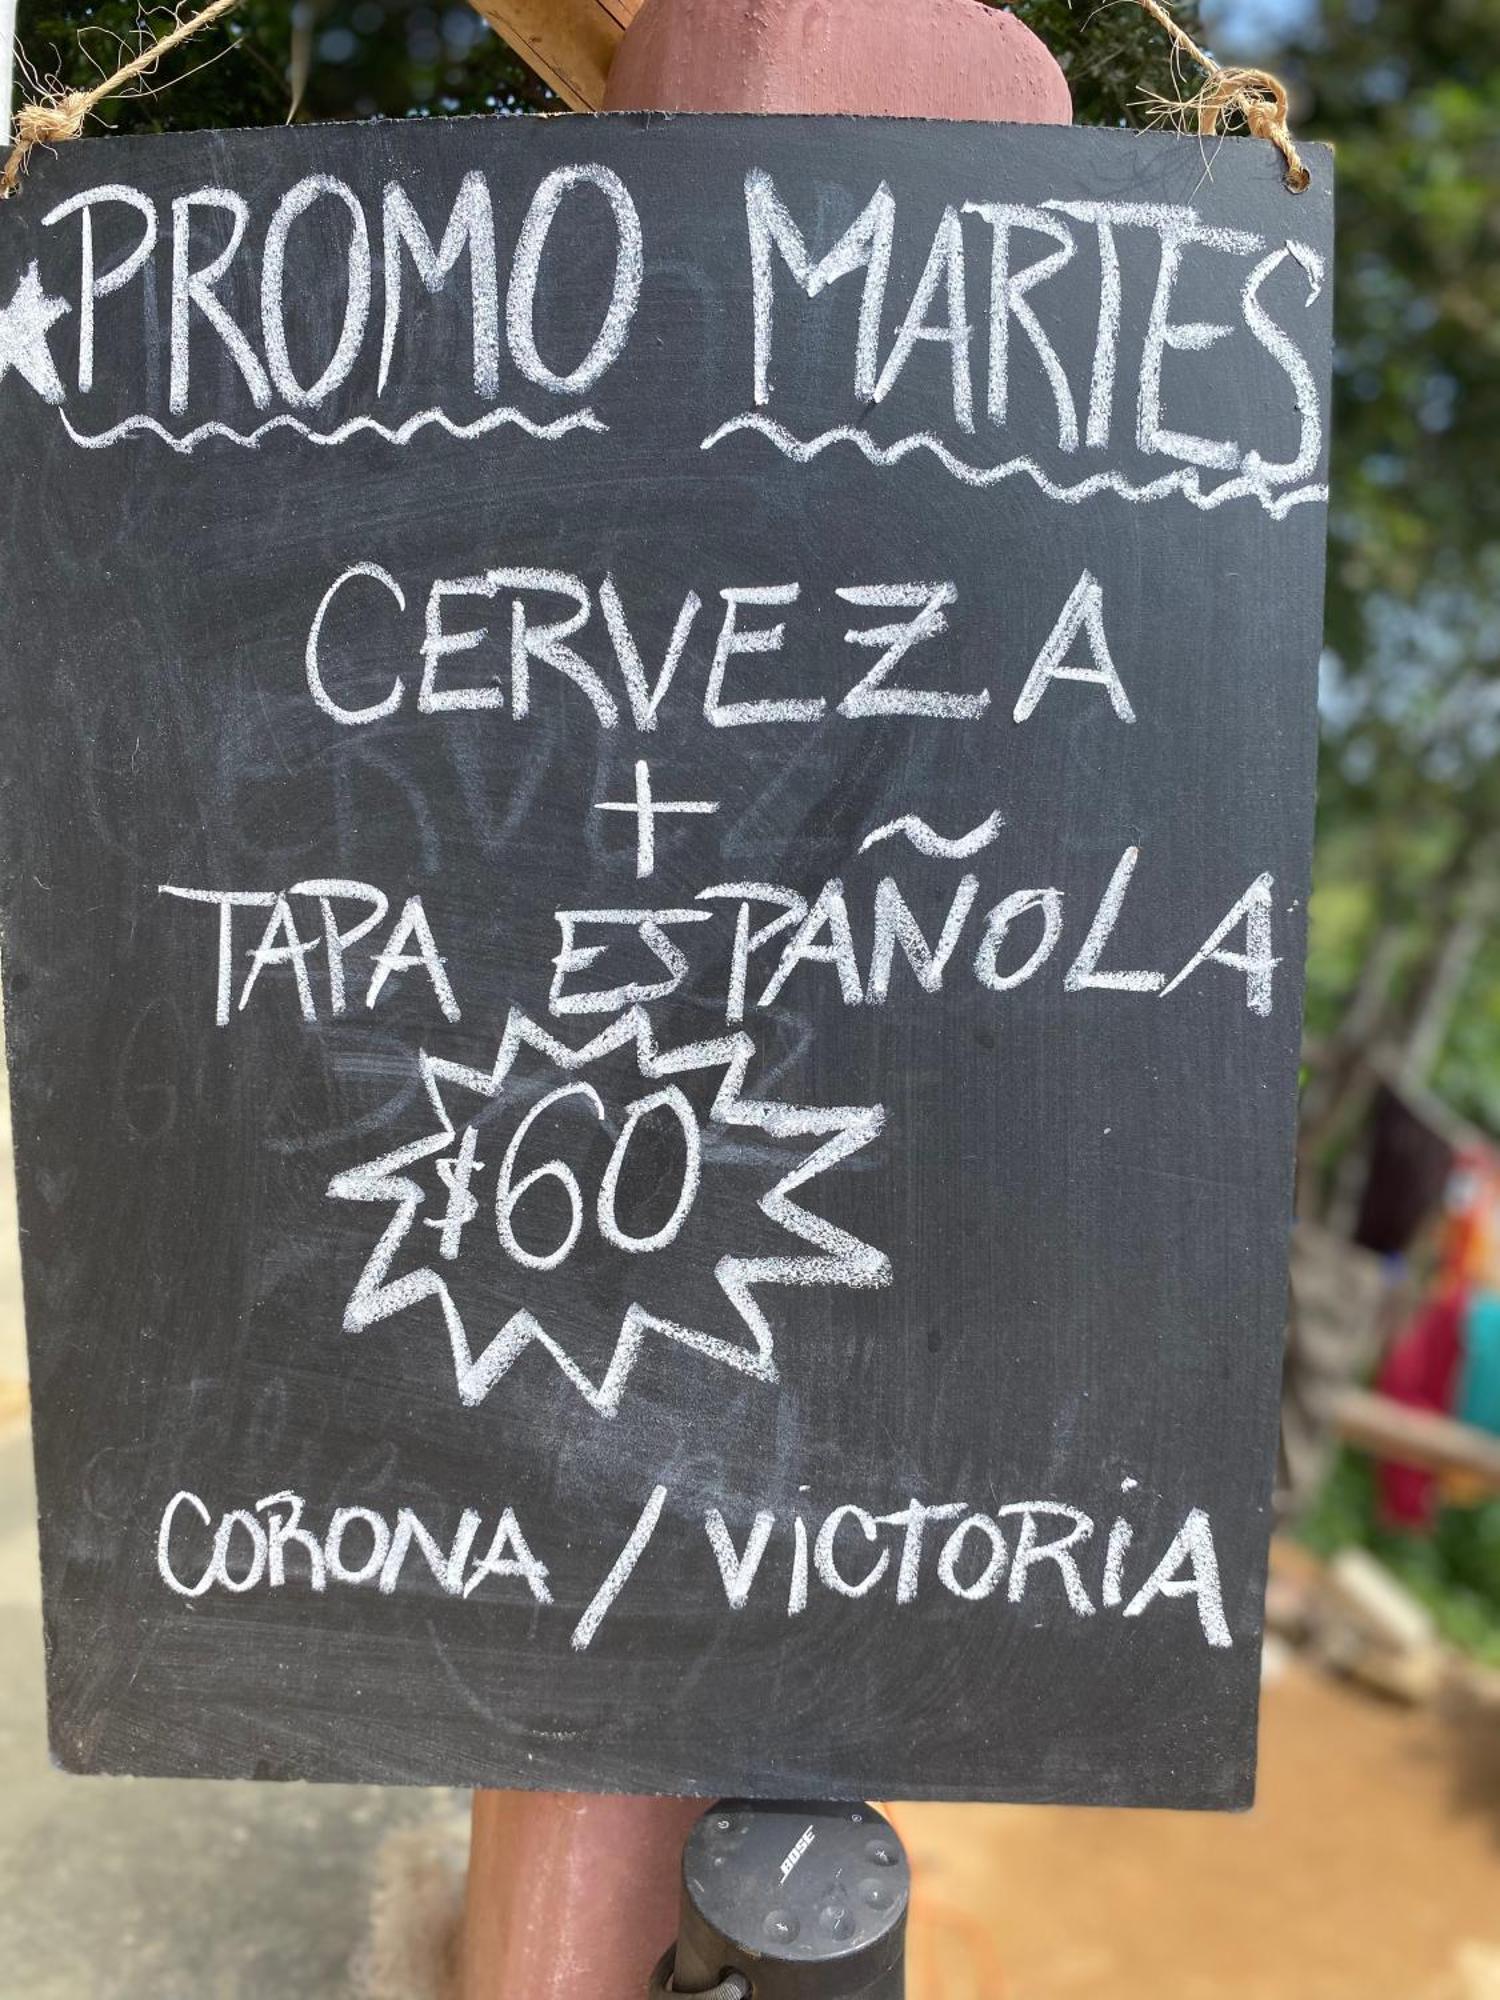 PROMO MARTES
CERVEZA
+
TAPA ESPAÑOLA
$60
CORONA / VICTORIA
BOSE